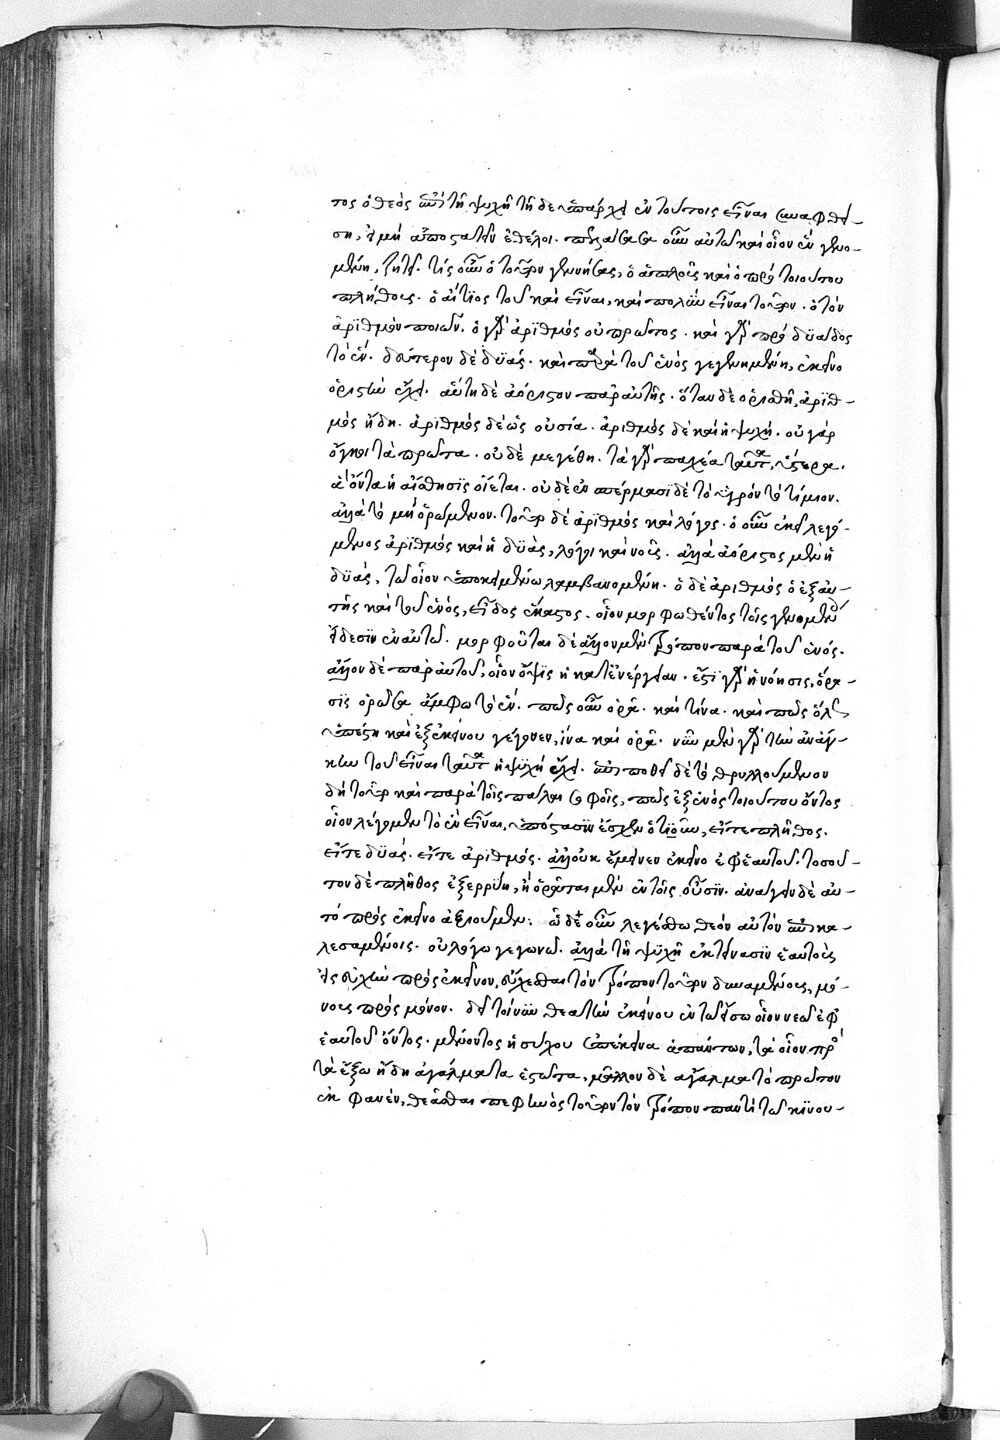 τος ὁ θεὸς ἐπὶ τῇ ψυχῇ τῇδε ὑπάρχει ἐν τούτοις εἶναι συναφθεί-
ση, εἰ μὴ ἀποστατεῖν ἐθέλοι. πελάσασα οὖν αὐτῷ καὶ οἷον ἓν γενο-
μένη, ζητεῖ. τίς οὖν ὁ τοῦτον γεννήσας, ὁ ἁπλοῦς καὶ ὁ πρὸ τοιούτου
πλήθους. ὁ αἴτιος τοῦ καὶ εἶναι, καὶ πολὺν εἶναι τοῦτον. ὁ τὸν
ἀριθμὸν ποιῶν. ὁ γὰρ ἀριθμὸς οὐ πρῶτος. καὶ γὰρ πρὸ δυάδος
τὸ ἕν. δεύτερον δὲ δυάς. καὶ παρὰ τοῦ ἑνὸς γεγενημένη, ἐκεῖνο
ὁριστὴν ἔχει. αὕτη δὲ ἀόριστον παρ' αὑτῆς. ὅταν δὲ ὁρισθῇ, ἀριθ-
μὸς ἤδη. ἀριθμὸς δὲ ὡς οὐσία. ἀριθμὸς δὲ καὶ ἡ ψυχή. οὐ γὰρ
ὄγκοι τὰ πρῶτα. οὐδὲ μεγέθη. τὰ γὰρ παχέα ταῦτα, ὕστερα.
ἃ ὄντα ἡ αἴσθησις οἴεται. οὐδὲ ἐν σπέρμασι δὲ τὸ ὑγρὸν τὸ τίμιον.
ἀλλὰ τὸ μὴ ὁρώμενον. τοῦτο δὲ ἀριθμὸς καὶ λόγος. ὁ οὖν ἐκεῖ λεγό-
μενος ἀριθμὸς καὶ ἡ δυὰς, λόγοι καὶ νοῦς. ἀλλὰ ἀόριστος μὲν ἡ
δυάς, τῷ οἷον ὑποκειμένῳ λαμβανομένη. ὁ δὲ ἀριθμὸς ὁ ἐξ αὐ-
τῆς καὶ τοῦ ἑνὸς, εἶδος ἕκαστος. οἷον μορφωθέντος τοῖς γενομένοις
εἴδεσιν ἐν αὐτῷ. μορφοῦται δὲ ἄλλον μὲν τρόπον παρὰ τοῦ ἑνός.
ἄλλον δὲ παρ' αὐτοῦ, οἷον ὄψις ἡ κατ' ἐνέργειαν. ἔστι γὰρ ἡ νόησις, ὅρα-
σις ὁρῶσα ἄμφω τὸ ἕν. πῶς οὖν ὁρᾷ. καὶ τίνα. καὶ πῶς ὅλως
ὑπέστη καὶ ἐξ ἐκείνου γέγονεν, ἵνα καὶ ὁρᾷ. νῦν μὲν γὰρ τὴν ἀνάγ-
κην τοῦ εἶναι ταῦτα ἡ ψυχὴ ἔχει. ἐπιποθεῖ δὲ τὸ θρυλλούμενον
δὴ τοῦτο καὶ παρὰ τοῖς πάλαι σοφοῖς, πῶς ἐξ ἑνὸς τοιούτου ὄντος
οἷον λέγομεν τὸ ἓν εἶναι, ὑπόστασιν ἔσχεν ὁτιοῦν, εἴτε πλῆθος.
εἴτε δυάς. εἴτε ἀριθμός. ἀλλ' οὐκ ἔμεινεν ἐκεῖνο ἐφ' ἑαυτοῦ. τοσοῦ-
τον δὲ πλῆθος ἐξερρύη, ἣ ὁρᾶται μὲν ἐν τοῖς οὖσιν. ἀνάγειν δὲ αὐ-
τὸ πρὸς ἐκεῖνο ἀξιοῦμεν: ὧδε οὖν λεγέσθω, θεὸν αὐτὸν ἐπικα-
λεσαμένοις. οὐ λόγῳ γεγωνῷ. ἀλλὰ τῇ ψυχῇ ἐκτείνασιν ἑαυτοὺς
εἰς εὐχὴν πρὸς ἐκεῖνον, εὔχεσθαι τὸν τρόπον τοῦτον δυναμένους, μό-
νους πρὸς μόνον. δεῖ τοίνυν θεατὴν ἐκείνου ἐν τῷ εἴσω οἷον νεῷ ἐφ'
ἑαυτοῦ ὄντος. μένοντος ἡσύχου ἐπέκεινα ἁπάντων, τὰ οἷον πρὸς
τὰ ἔξω ἤδη ἀγάλματα ἑστῶτα, μᾶλλον δὲ ἄγαλμα τὸ πρῶτον
ἐκφανέν, θεᾶσθαι πεφηνὸς τοῦτον τὸν τρόπον παντὶ τῷ κινου-